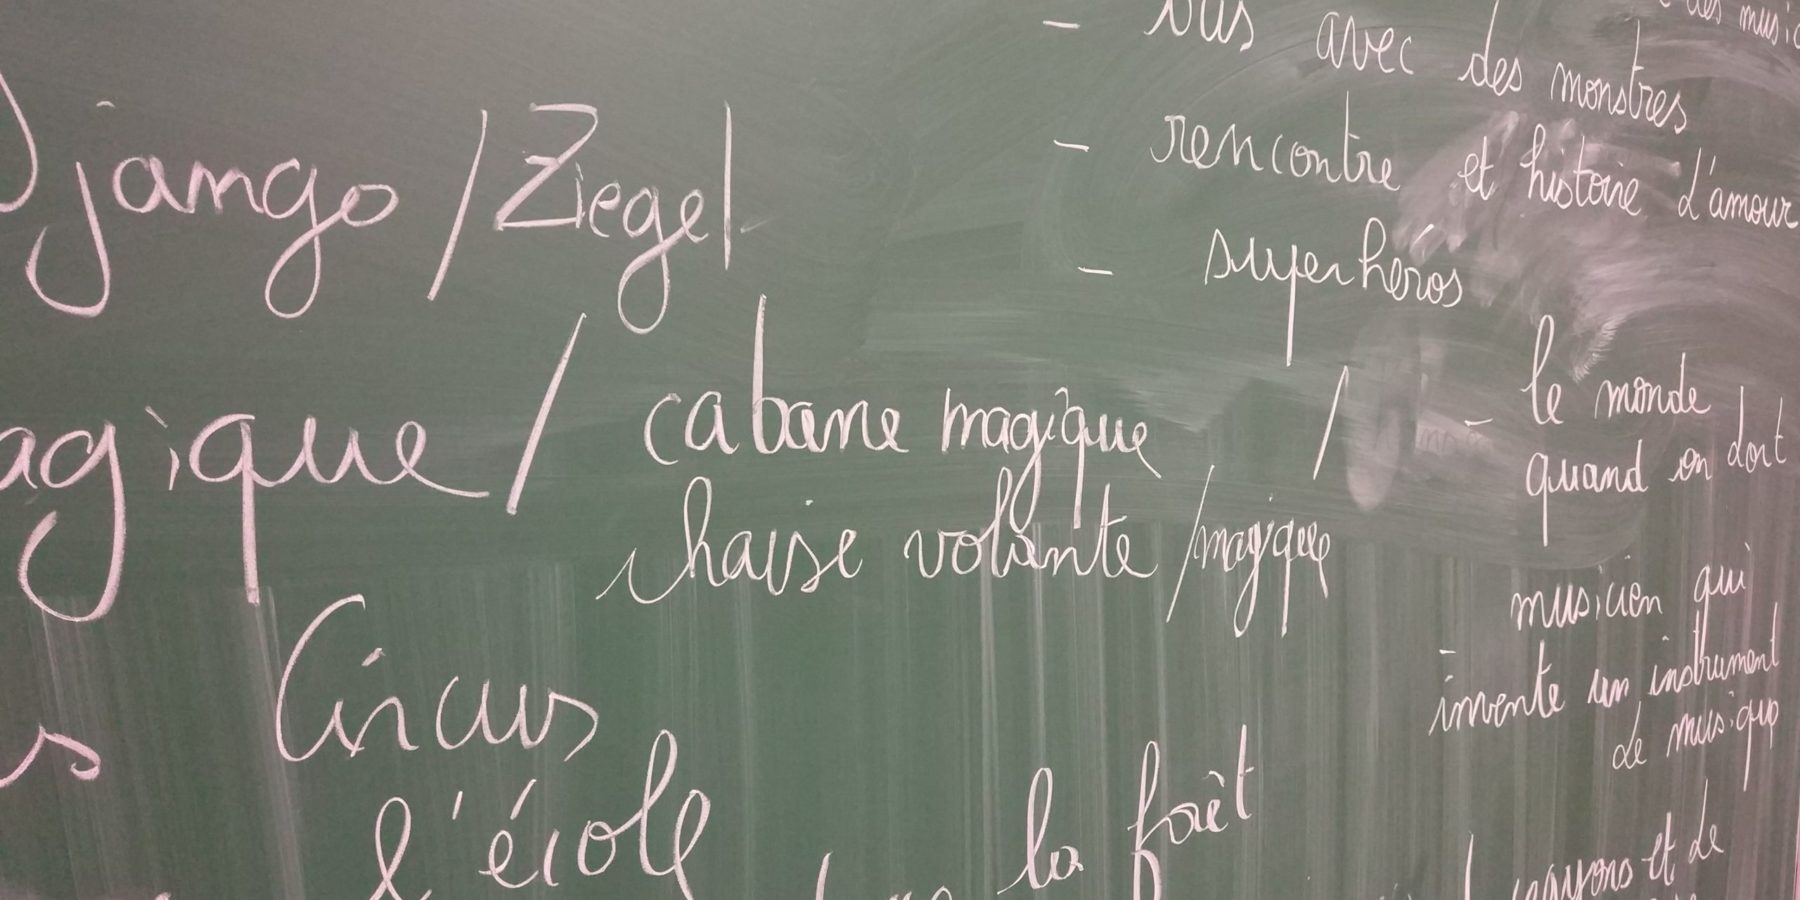 Django / Ziegel
agique / cabane magique /
chaise volante / magique
Circus
s
l'école
la forêt
des music
- avec des monstres
- rencontre et histoire d'amour
- superhéros
- le monde
quand on dort
- musicien qui
invente un instrument
de musique
crayons et de